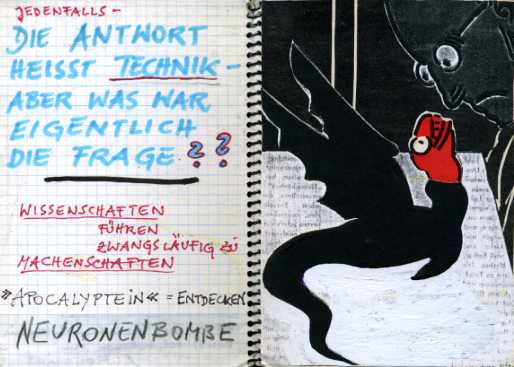 JEDENFALLS -
DIE ANTWORT
HEISST TECHNIK -
ABER WAS WAR
EIGENTLICH
DIE FRAGE ??
WISSENSCHAFTEN
FÜHREN
ZWANGSLÄUFIG ZU
MACHENSCHAFTEN
"APOCALYPTEIN" = ENTDECKEN
NEURONENBOMBE